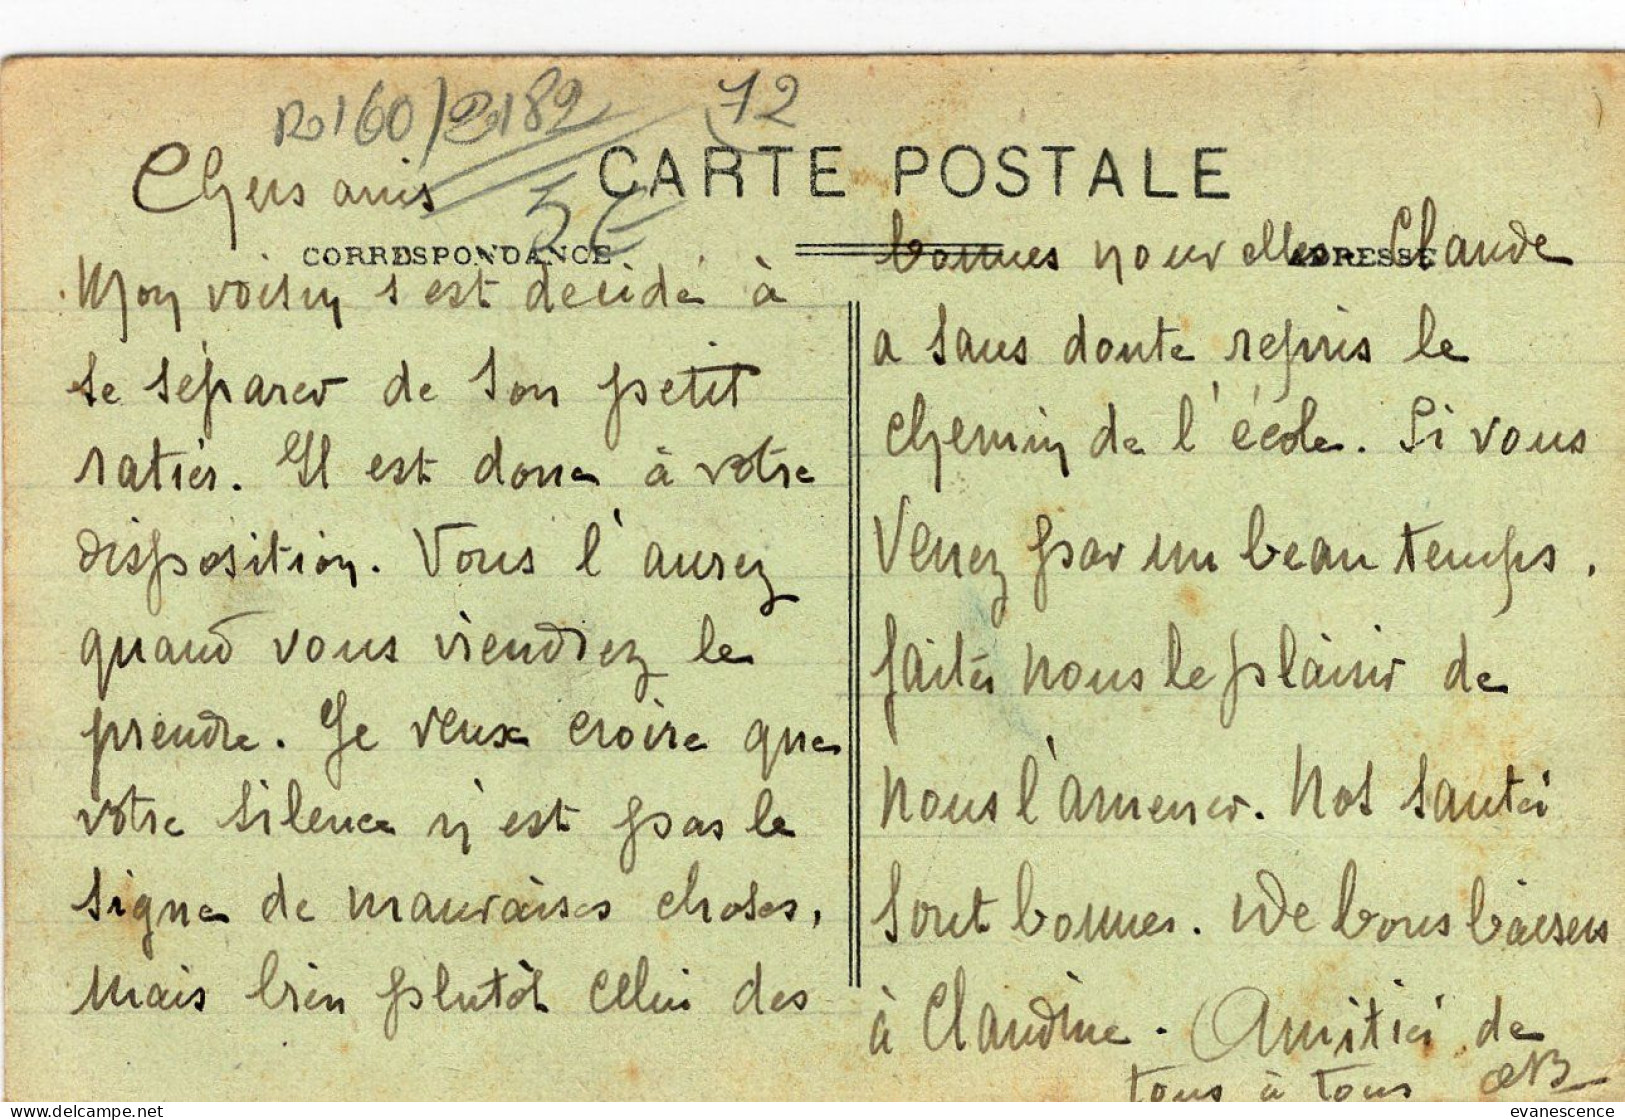 R160/2182 72
5€
CARTE POSTALE
CORRESPONDANCE
ADRESSE
Chers amis
Mon voisin s'est décidé à
se séparer de son petit
ratier. Il est donc à votre
disposition. Vous l'aurez
quand vous viendrez le
prendre. Je veux croire que
votre silence n'est pas le
signe de mauvaises choses,
mais bien plutôt celui des
bonnes nouvelles. Claude
a sans doute repris le
chemin de l'école. Si vous
venez par un beau temps,
faites nous le plaisir de
nous l'amener. Nos santés
sont bonnes. De bons baisers
à Claudine. Amitiés de
tous à tous
evanescence